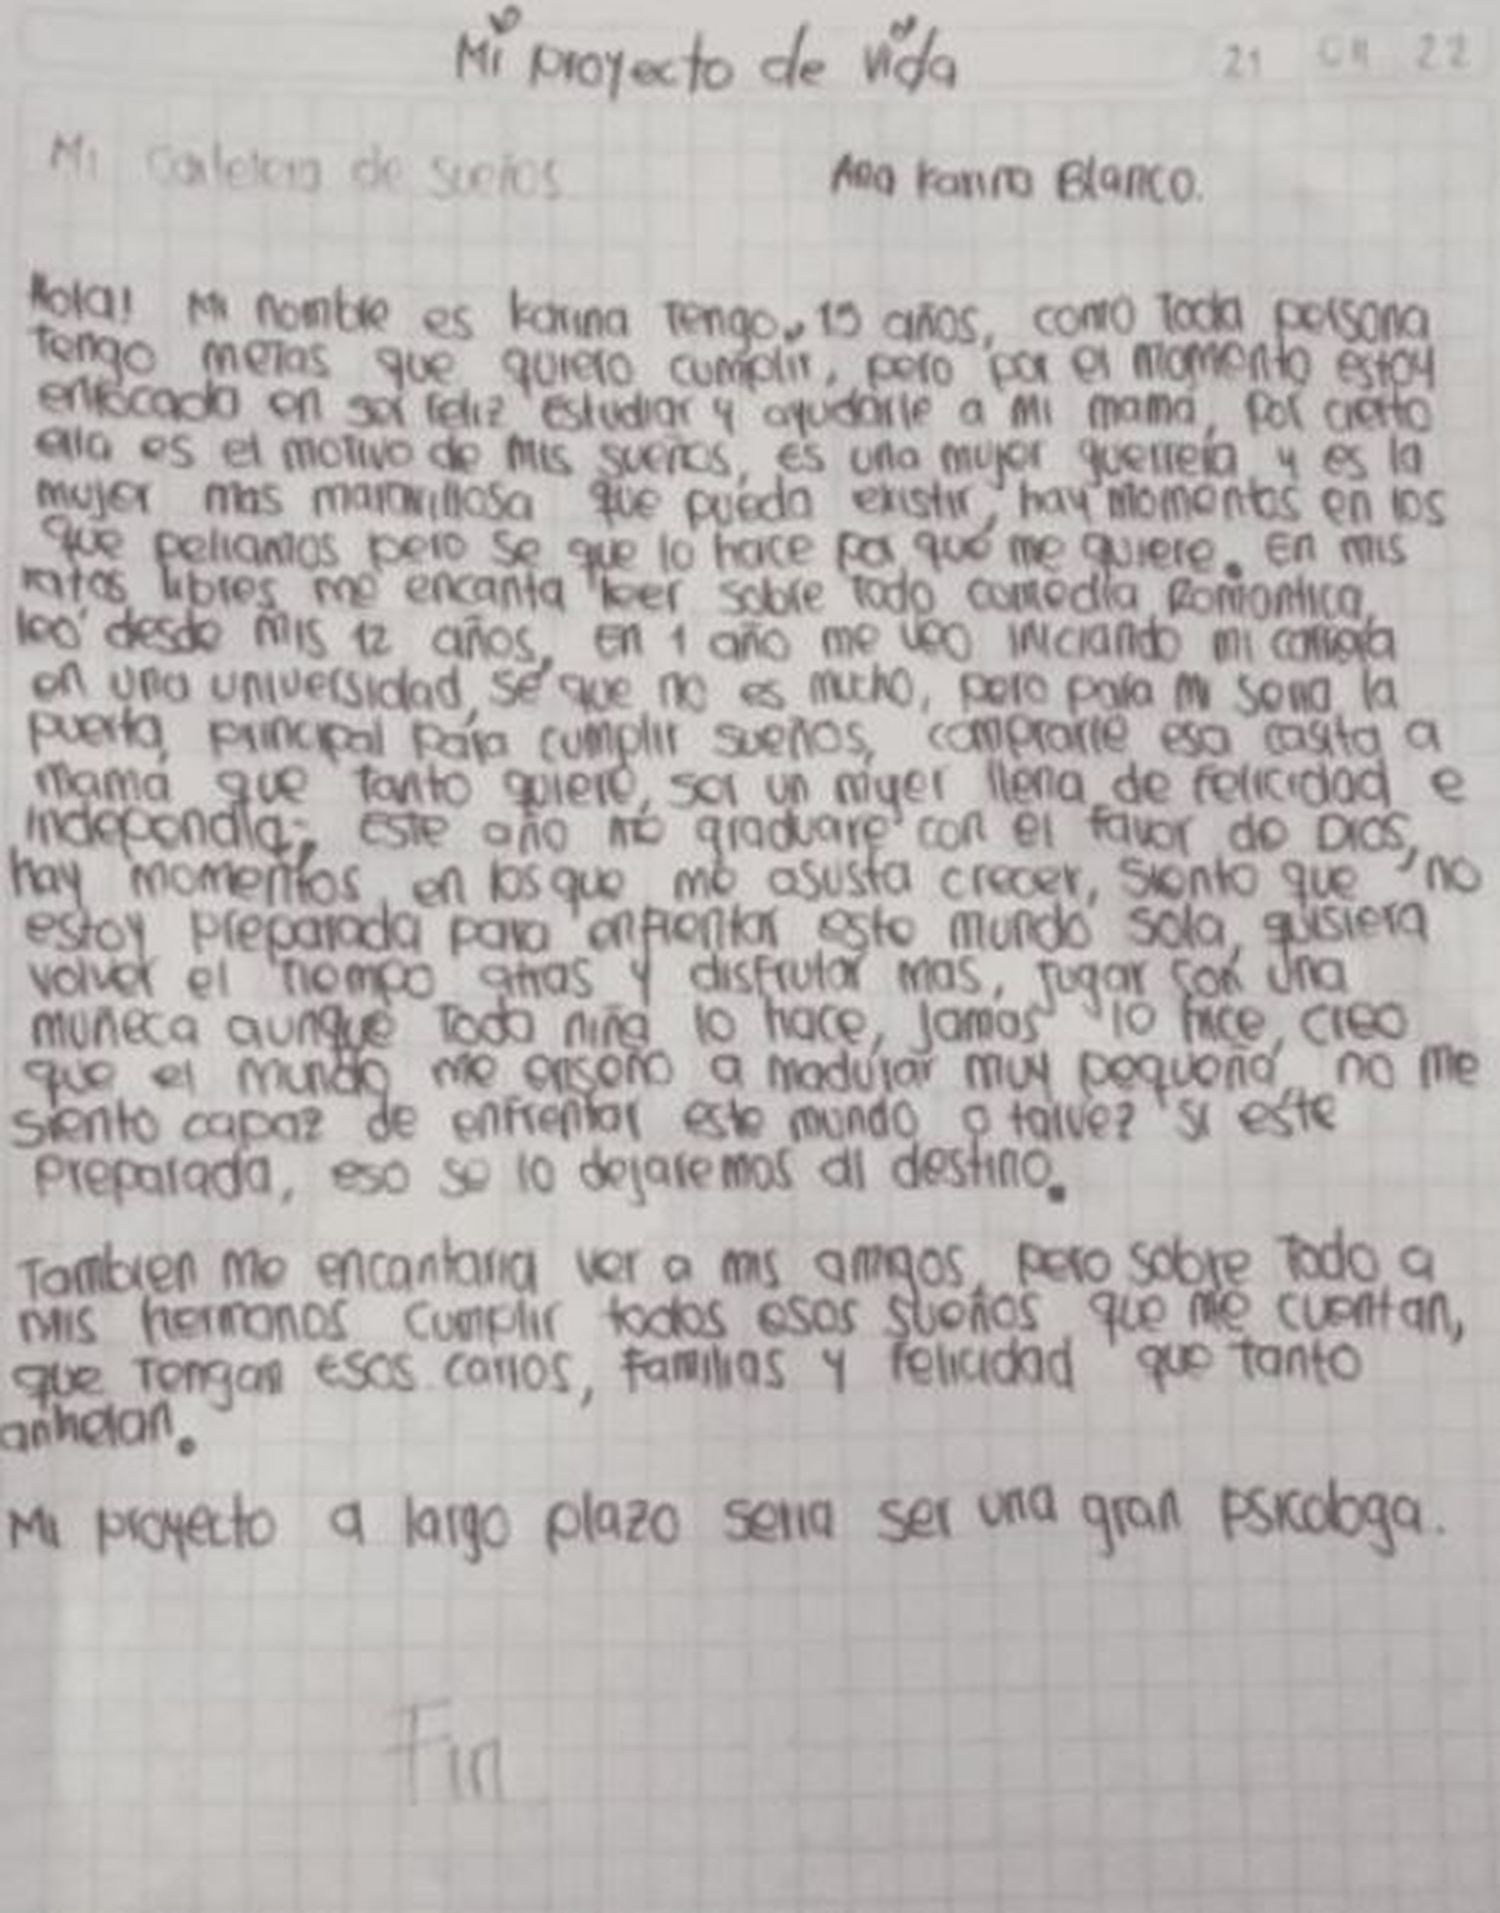 Mi proyecto de vida
21 22
Mi de sueños
Ana Karina Blanco.
Hola! Mi nombre es Karina Tengo 15 años, como Toda persona
Tengo metas que quiero cumplir, pero por el momento estoy
enfocada en ser Feliz Estudiar y ayudarle a mi mamá, Por cierto
ella es el motivo de mis sueños, Es una mujer guerrera y es la
mujer mas maravillosa que pueda existir, hay momentos en los
que peliamos pero se que lo hace por qué me quiere. En mis
ratos libres me encanta leer sobre Todo comedia Romantica,
leo desde mis 12 años, En 1 año me veo iniciando mi carrera
en una universidad, sé que no es mucho, pero para mi seria la
puerta principal para cumplir sueños, comprarle esa casita a
mamá que tanto quiere, ser un mujer llena de Felicidad e
Este año me graduare con el favor de Dios,
hay momentos en los que me asusta crecer, siento que no
estoy preparada para enfrentar este mundo sola, quisiera
volver el Tiempo atras y disfrutar mas, jugar con una
muñeca aunque Toda niña lo hace, jamas lo hice, creo
que el mundo me enseño a madurar muy pequeña, no me
siento capaz de enfrentar este mundo o talvez si este
preparada, eso se lo dejaremos al destino.
Tambien me encantaria ver a mis amigos, pero sobre Todo a
mis hermanos cumplir todos esos sueños que me cuentan,
que Tengan Esos carros, Familias y Felicidad que tanto
anhelan.
Mi proyecto a largo plazo seria ser una gran psicologa.
Fin